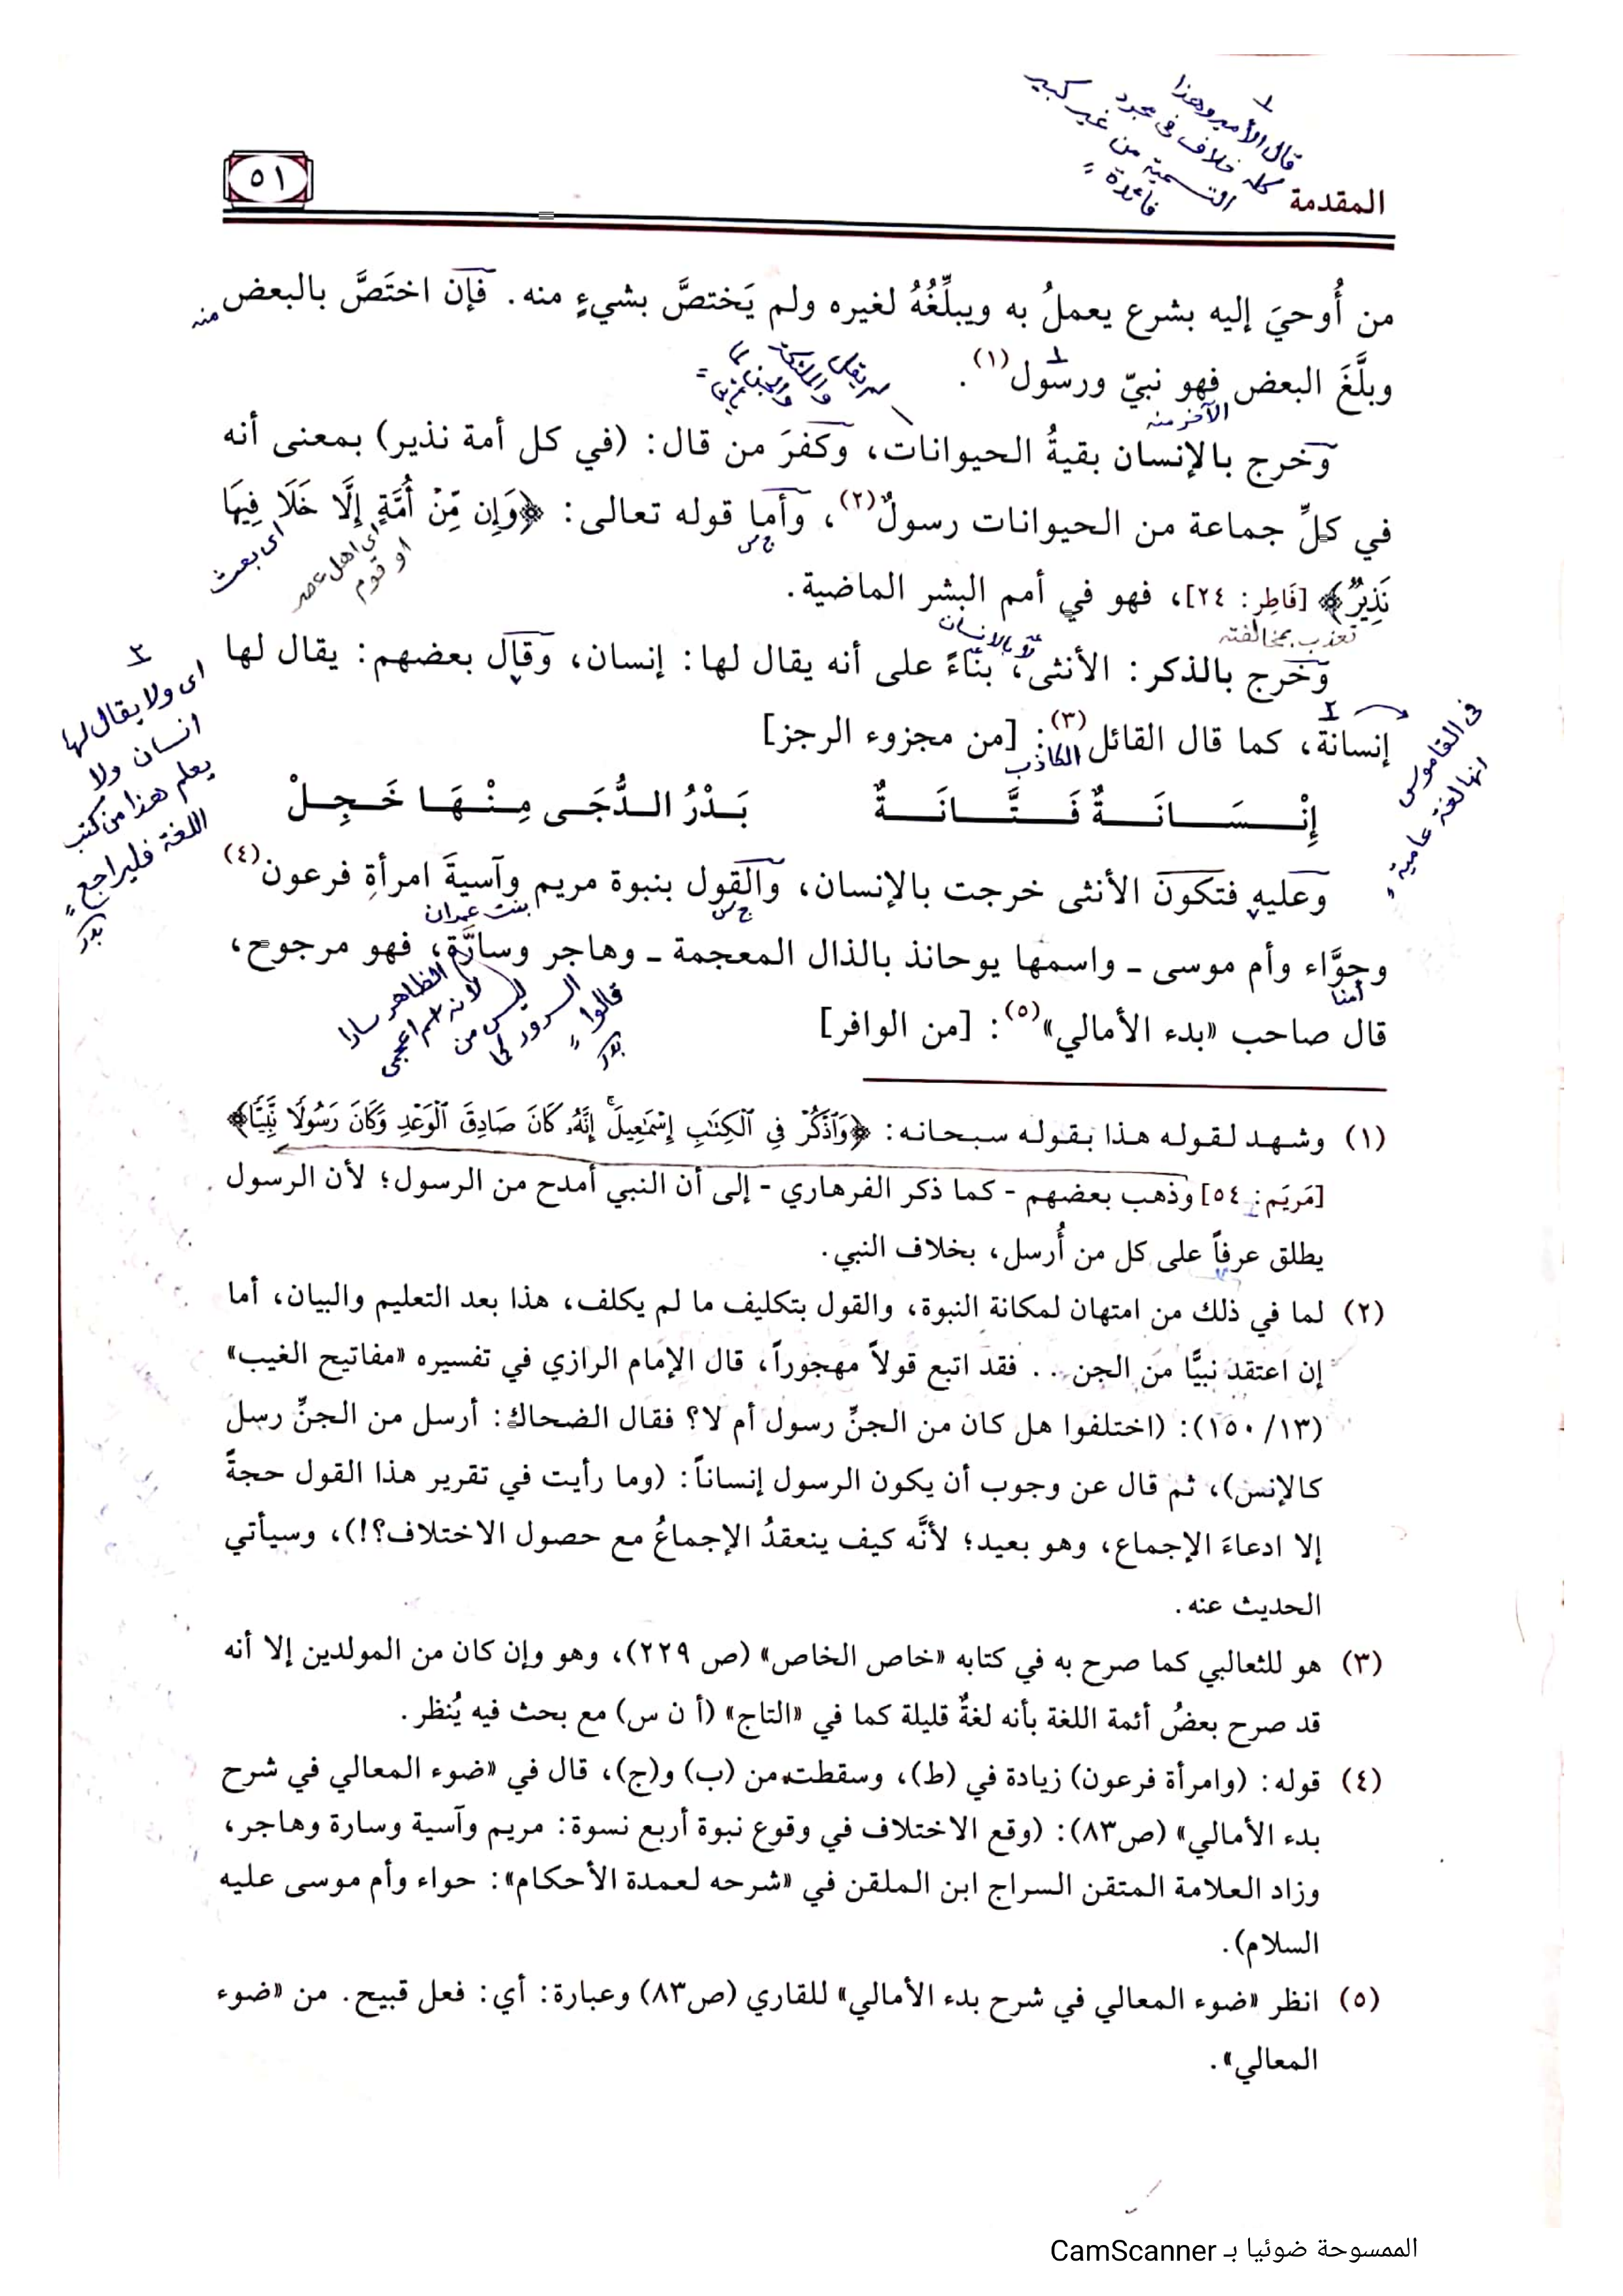 قال الأمير وهذا
كله خلاف في مجرد
التسمية من غير كبير
فائدة
المقدمة
٥١
من أُوحيَ إليه بشرع يعملُ به ويبلِّغُهُ لغيره ولم يَختصَّ بشيءٍ منه. فإن اختَصَّ بالبعض
منه
وبلَّغَ البعض فهو نبيّ ورسول(١).
الآخر منه
وخرج بالإنسان بقيةُ الحيوانات، وكفرَ من قال: (في كل أمة نذير) بمعنى أنه
في كلِّ جماعة من الحيوانات رسولٌ(٢)، وأما قوله تعالى: ﴿وَإِن مِّنْ أُمَّةٍ إِلَّا خَلَا فِيهَا
اى اهل عصر
او قوم
اى بعث
نَذِيرٌ﴾ [فَاطِر: ٢٤]، فهو في أمم البشر الماضية.
تعذب بمخالفته
لا بالانسان
وخَرج بالذكر: الأنثى، بناءً على أنه يقال لها: إنسان، وقال بعضهم: يقال لها
إنسانة، كما قال القائل(٣): [من مجزوء الرجز]
الكاذب
فى القاموس
انها لغة عامية
اى ولا يقال لها
انسان ولا
يعلم هذا من كتب
اللغة فليراجع
إِنْـسَـانَـةٌ فَـتَّـانَـةٌ بَـدْرُ الـدُّجَـى مِـنْـهَـا خَـجِـلْ
وعليه فتكونَ الأنثى خرجت بالإنسان، والقول بنبوة مريم وآسيةَ امرأةِ فرعون(٤)
بنت عمران
وحوَّاء وأم موسى ـ واسمها يوحانذ بالذال المعجمة ـ وهاجر وسارَّة، فهو مرجوح،
أمنا
الظاهر سارا
لانه اسم اعجمى
ليس من
السرور كما
قالوا
قال صاحب «بدء الأمالي»(٥): [من الوافر]
(١) وشهد لقوله هذا بقوله سبحانه: ﴿وَٱذْكُرْ فِي ٱلْكِتَٰبِ إِسْمَٰعِيلَ إِنَّهُۥ كَانَ صَادِقَ ٱلْوَعْدِ وَكَانَ رَسُولًا نَّبِيًّا﴾
[مَريَم: ٥٤] وذهب بعضهم - كما ذكر الفرهاري - إلى أن النبي أمدح من الرسول؛ لأن الرسول
يطلق عرفاً على كل من أُرسل، بخلاف النبي.
(٢) لما في ذلك من امتهان لمكانة النبوة، والقول بتكليف ما لم يكلف، هذا بعد التعليم والبيان، أما
إن اعتقد نبيًّا من الجن .. فقد اتبع قولاً مهجوراً، قال الإمام الرازي في تفسيره «مفاتيح الغيب»
(١٣/ ١٥٠): (اختلفوا هل كان من الجنِّ رسول أم لا؟ فقال الضحاك: أرسل من الجنِّ رسل
كالإنس)، ثم قال عن وجوب أن يكون الرسول إنساناً: (وما رأيت في تقرير هذا القول حجةً
إلا ادعاءَ الإجماع، وهو بعيد؛ لأنَّه كيف ينعقدُ الإجماعُ مع حصول الاختلاف؟!)، وسيأتي
الحديث عنه.
(٣) هو للثعالبي كما صرح به في كتابه «خاص الخاص» (ص ٢٢٩)، وهو وإن كان من المولدين إلا أنه
قد صرح بعضُ أئمة اللغة بأنه لغةٌ قليلة كما في «التاج» (أ ن س) مع بحث فيه يُنظر.
(٤) قوله: (وامرأة فرعون) زيادة في (ط)، وسقطت من (ب) و(ج)، قال في «ضوء المعالي في شرح
بدء الأمالي» (ص٨٣): (وقع الاختلاف في وقوع نبوة أربع نسوة: مريم وآسية وسارة وهاجر،
وزاد العلامة المتقن السراج ابن الملقن في «شرحه لعمدة الأحكام»: حواء وأم موسى عليه
السلام).
(٥) انظر «ضوء المعالي في شرح بدء الأمالي» للقاري (ص٨٣) وعبارة: أي: فعل قبيح. من «ضوء
المعالي».
الممسوحة ضوئيا بـ CamScanner